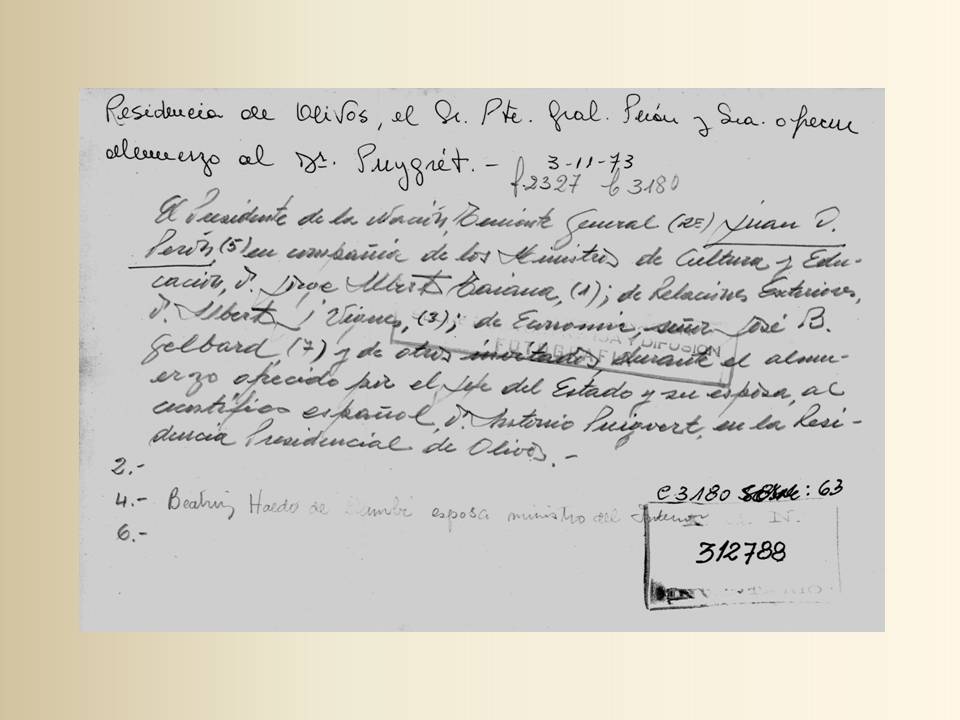 Residencia de Olivos, el Sr. Pte. Gral. Perón y Sra. ofrecen
almuerzo al Dr. Puygrét. - 3-11-73
f.2327 C 3180
El Presidente de la Nación, Teniente General (RE) Juan D.
Perón, (5) en compañía de los Ministros de Cultura y Edu-
cación, Dr. Jorge Alberto Taiana, (1); de Relaciones Exteriores,
Dr. Alberto J. Vignes, (3); de Economía, señor José B.
Gelbard (7) y de otros invitados, durante el almu-
erzo ofrecido por el Jefe del Estado y su esposa, al
científico español, Dr. Antonio Puigvert, en la Resi-
dencia Presidencial de Olivos. -
Y DIFUSIÓN
2.-
4.- Beatriz Haedo de Llambí esposa ministro del Interior
6.-
C 3180 Sobre: 63
312788